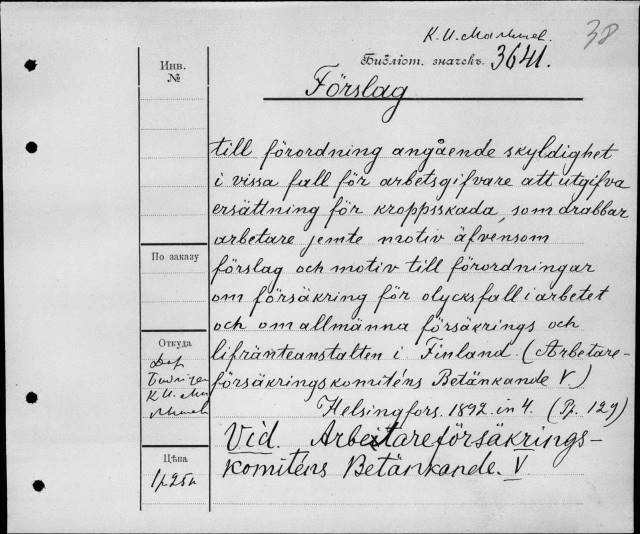 К. И. Малышев.
38
Библіот. значекъ. 3641.
Инв.
№
Förslag
till förordning angående skyldighet
i vissa fall för arbetsgifvare att utgifva
ersättning för kroppsskada, som drabbar
arbetare jemte motiv äfvensom
förslag och motiv till förordningar
om försäkring för olycksfall i arbetet
och om allmänna försäkrings och
lifränteanstalten i Finland. (Arbetare-
försäkringskomiténs Betänkande V.)
Helsingfors. 1892. in 4. (Pp. 129)
Vid. Arbeitareförsäkrings-
komiténs Betänkande. V
По заказу
Откуда
К. И. Ма
лышев
Цѣна
1р25к